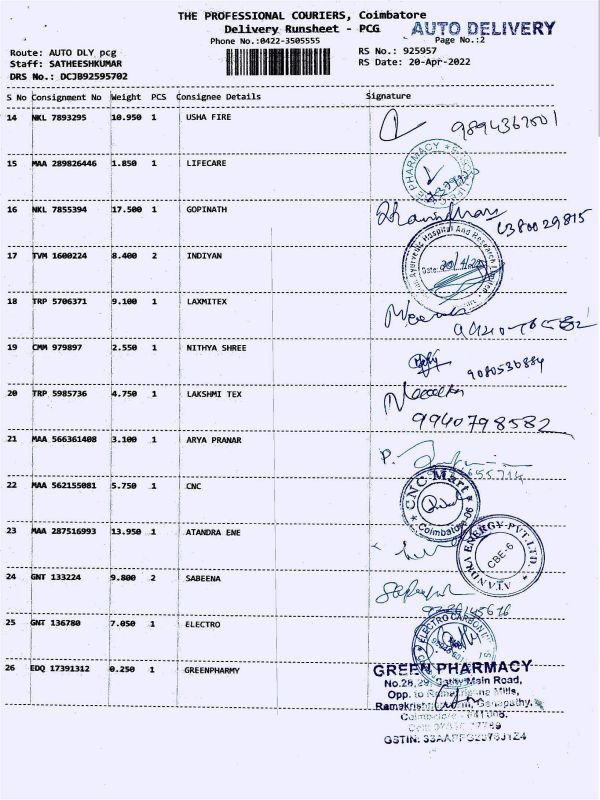 THE PROFESSIONAL COURIERS, Coimbatore
Delivery Runsheet - PCG
AUTO DELIVERY
Phone No.:0422-3505555
Page No.:2
Route: AUTO DLY pcg
RS No.: 925957
Staff: SATHEESHKUMAR
RS Date: 20-Apr-2022
DRS No.: DCJB92595702
S No Consignment No Weight PCS Consignee Details Signature
14 NKL 7893295 10.950 1 USHA FIRE
15 MAA 289826446 1.850 1 LIFECARE
PHARMACY
16 NKL 7855394 17.500 1 GOPINATH
6380029815
Ayurvedic Hospital And Research
17 TVM 1600224 8.400 2 INDIYAN
Date: 20/4/22
18 TRP 5706371 9.100 1 LAXMITEX
19 CMM 979897 2.550 1 NITHYA SHREE
9080530884
20 TRP 5985736 4.750 1 LAKSHMI TEX
9940798582
21 MAA 566361408 3.100 1 ARYA PRANAR
P.
22 MAA 562155081 5.750 1 CNC
CNC Mart
Coimbatore-06
23 MAA 287516993 13.950 1 ATANDRA ENE
ATANDRA ENERGY PVT.LTD.
CBE-6
24 GNT 133224 9.800 2 SABEENA
25 GNT 136780 7.050 1 ELECTRO
ELECTRO CARBON
26 EDQ 17391312 0.250 1 GREENPHARMY
GREEN PHARMACY
No.28,29, Sathy Main Road,
Opp. to Ramakrishna Mills,
Ganapathy,
Coimbatore - 641006.
GSTIN: